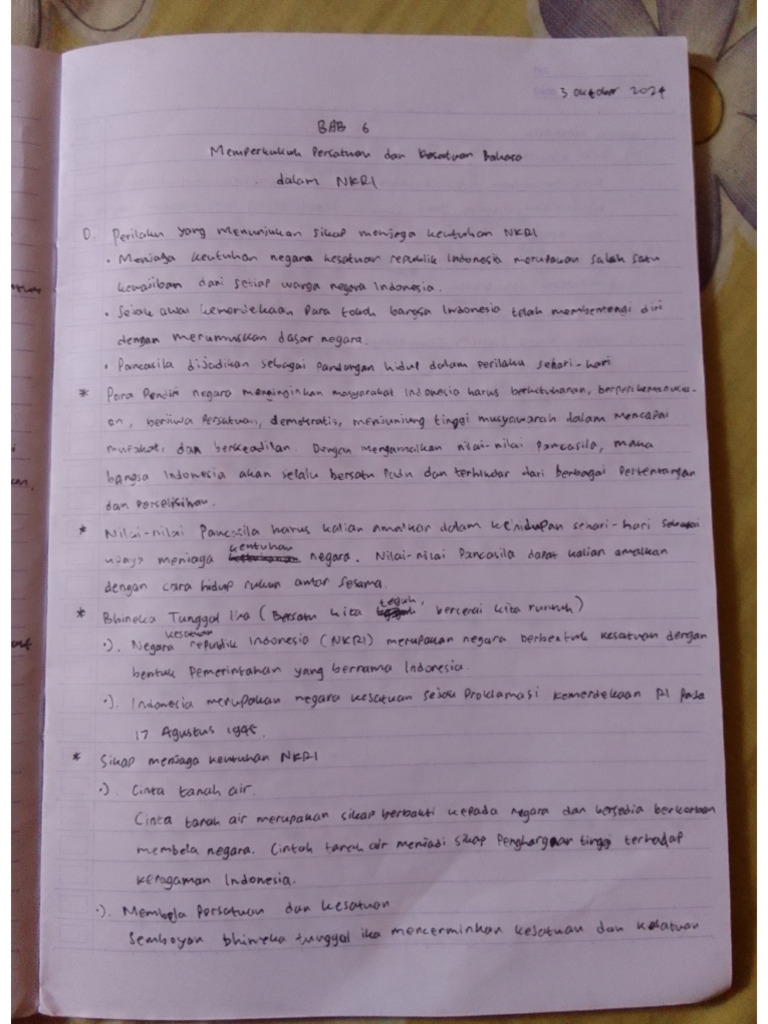 3 Oktober 2024
BAB 6
Memperkukuh Persatuan dan Kesatuan Bahasa
dalam NKRI
D. Perilaku yang menunjukan sikap menjaga keutuhan NKRI
• Menjaga keutuhan negara kesatuan republik Indonesia merupakan salah satu
kewajiban dari setiap warga negara Indonesia.
• Sejak awal kemerdekaan para tokoh bangsa Indonesia telah membentengi diri
dengan merumuskan dasar negara.
• Pancasila dijadikan sebagai pandangan hidup dalam perilaku sehari-hari
* Para Pendiri negara menginginkan masyarakat Indonesia harus berketuhanan, berperikemanusia-
an, berjiwa Persatuan, demokratis, menjunjung tinggi musyawarah dalam mencapai
mufakat, dan berkeadilan. Dengan mengamalkan nilai-nilai Pancasila, maka
bangsa Indonesia akan selalu bersatu padu dan terhindar dari berbagai Pertentangan
dan Perselisihan.
* Nilai-nilai Pancasila harus kalian amalkan dalam kehidupan sehari-hari sebagai
upaya menjaga keutuhan negara. Nilai-nilai Pancasila dapat kalian amalkan
dengan cara hidup rukun antar sesama.
* Bhineka Tunggal Ika (Bersatu kita teguh, bercerai kita runtuh)
•). Negara kesatuan republik Indonesia (NKRI) merupakan negara berbentuk kesatuan dengan
bentuk Pemerintahan yang bernama Indonesia.
•). Indonesia merupakan negara kesatuan sejak Proklamasi Kemerdekaan RI Pada
17 Agustus 1945.
* Sikap menjaga keutuhan NKRI
•). Cinta tanah air.
Cinta tanah air merupakan sikap berbakti kepada negara dan bersedia berkorban
membela negara. Cintah tanah air menjadi sikap Penghargaan tinggi terhadap
keragaman Indonesia.
•). Membela Persatuan dan kesatuan
Semboyan bhineka tunggal ika mencerminkan kesatuan dan